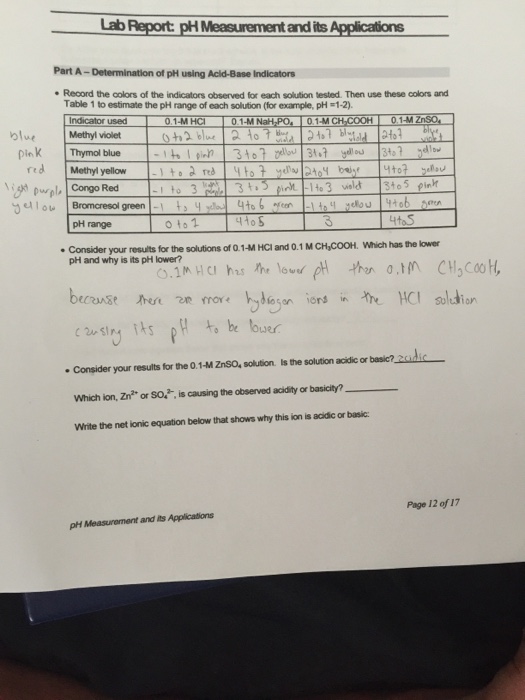 Lab Report: pH Measurement and its Applications
Part A – Determination of pH using Acid-Base Indicators
• Record the colors of the indicators observed for each solution tested. Then use these colors and
Table 1 to estimate the pH range of each solution (for example, pH =1-2).
Indicator used 0.1-M HCl 0.1-M NaH₂PO₄ 0.1-M CH₃COOH 0.1-M ZnSO₄
blue Methyl violet 0 to 2 blue 2 to 7 blue violet 2 to 7 blue violet 2 to 7 blue violet
pink Thymol blue -1 to 1 pink 3 to 7 yellow 3 to 7 yellow 3 to 7 yellow
red Methyl yellow -1 to 2 red 4 to 7 yellow 2 to 4 4 to 7 yellow
light purple Congo Red -1 to 3 light purple 3 to 5 pink -1 to 3 violet 3 to 5 pink
yellow Bromcresol green -1 to 4 yellow 4 to 6 green -1 to 4 yellow 4 to 6 green
pH range 0 to 1 4 to 5 3 4 to 5
• Consider your results for the solutions of 0.1-M HCl and 0.1 M CH₃COOH. Which has the lower
pH and why is its pH lower?
0.1M HCl has the lower pH than 0.1M CH₃COOH,
because there are more hydrogen ions in the HCl solution
causing its pH to be lower
• Consider your results for the 0.1-M ZnSO₄ solution. Is the solution acidic or basic? acidic
Which ion, Zn²⁺ or SO₄²⁻, is causing the observed acidity or basicity?
Write the net ionic equation below that shows why this ion is acidic or basic:
pH Measurement and its Applications
Page 12 of 17